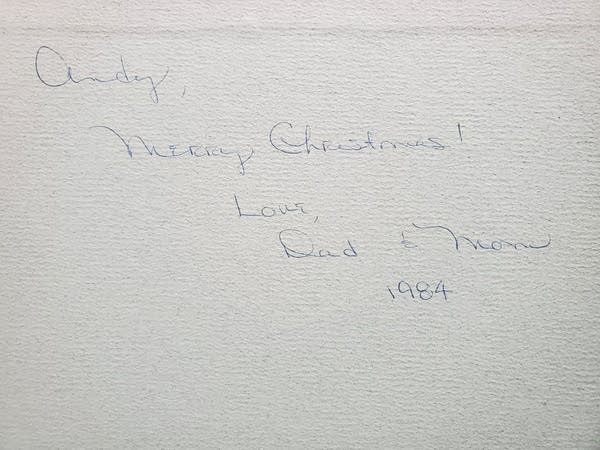 Andy,
Merry Christmas!
Love,
Dad & Mom
1984